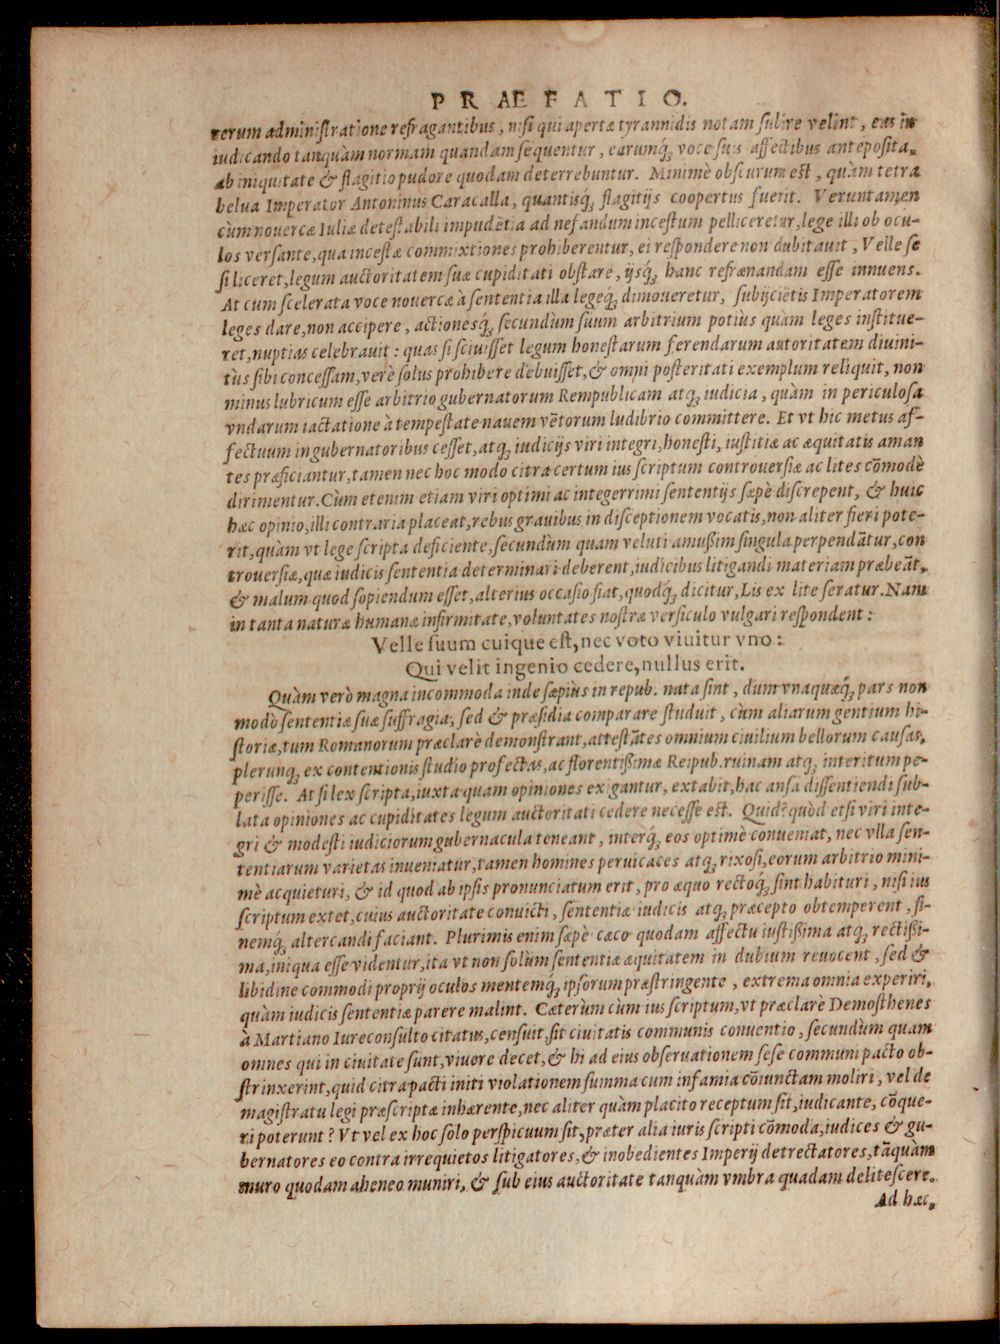 PRÆFATIO.
rerum administratione refragantibus, nisi qui apertæ tyrannidis notam subire velint, eas in
iudicando tanquàm normam quandam sequentur, earumq́ꝫ voce suis affectibus anteposita,
ab iniquitate & flagitio pudore quodam deterrebuntur. Minimè obscurum est, quàm tetra
belua Imperator Antoninus Caracalla, quantisq́ꝫ flagitijs coopertus fuerit. Veruntamen
cùm nouercæ Iuliæ detestabili impudētia ad nefandum incestum pelliceretur, lege illi ob ocu-
los versante, qua incestæ commixtiones prohiberentur, ei respondere non dubitauit, Velle se
si liceret, legum auctoritatem suæ cupiditati obstare, ijsq́ꝫ hanc refrænandam esse innuens.
At cum scelerata voce nouercæ à sententia illa legeq́ꝫ dimoueretur, subijciētis Imperatorem
leges dare, non accipere, actionesq́ꝫ secundùm suum arbitrium potius quàm leges institue-
ret, nuptias celebrauit: quas si sciuisset legum honestarum ferendarum autoritatem diuini-
tùs sibi concessam, verè solus prohibere debuisset, & omni posteritati exemplum reliquit, non
minus lubricum esse arbitrio gubernatorum Rempublicam atqꝫ iudicia, quàm in periculosa
vndarum iactatione à tempestate nauem vētorum ludibrio committere. Et vt hic metus af-
fectuum in gubernatoribus cesset, atqꝫ iudicijs viri integri, honesti, iustitiæ ac æquitatis aman
tes præficiantur, tamen nec hoc modo citra certum ius scriptum controuersiæ ac lites cōmodè
dirimentur. Cùm etenim etiam viri optimi ac integerrimi sententijs sæpè discrepent, & huic
hæc opinio, illi contraria placeat, rebus grauibus in disceptionem vocatis, non aliter fieri pote-
rit, quàm vt lege scripta deficiente, secundùm quam veluti amußim singula perpendātur, con
trouersiæ, quæ iudicis sententia determinari deberent, iudicibus litigandi materiam præbeāt,
& malum quod sopiendum esset, alterius occasio fiat, quodq́ꝫ dicitur, Lis ex lite seratur. Nam
in tanta naturæ humanæ infirmitate, voluntates nostræ versiculo vulgari respondent:
Velle suum cuique est, nec voto viuitur vno:
Qui velit ingenio cedere, nullus erit.
Quàm verò magna incommoda inde sæpius in repub. nata sint, dum vnaquæq́ꝫ pars non
modò sententiæ suæ suffragia, sed & præsidia comparare studuit, cùm aliarum gentium hi-
storiæ, tum Romanorum præclarè demonstrant, attestātes omnium ciuilium bellorum causas,
plerunqꝫ ex contentionis studio profectas, ac florentißimæ Reipub. ruinam atqꝫ interitum pe-
perisse. At si lex scripta, iuxta quam opiniones exigantur, extabit, hac ansa dissentiendi sub-
lata opiniones ac cupiditates legum auctoritati cedere necesse est. Quid? quòd etsi viri inte-
gri & modesti iudiciorum gubernacula teneant, interq́ꝫ eos optimè conueniat, nec vlla sen-
tentiarum varietas inueniatur, tamen homines peruicaces atqꝫ rixosi, eorum arbitrio mini-
mè acquieturi, & id quod ab ipsis pronunciatum erit, pro æquo rectoq́ꝫ sint habituri, nisi ius
scriptum extet, cuius auctoritate conuicti, sententiæ iudicis atqꝫ præcepto obtemperent, fi-
nemq́ꝫ altercandi faciant. Plurimis enim sæpè cæco quodam affectu iustißima atqꝫ rectißi-
ma, iniqua esse videntur, ita vt non solùm sententiæ æquitatem in dubium reuocent, sed &
libidine commodi proprij oculos mentemq́ꝫ ipsorum præstringente, extrema omnia experiri,
quàm iudicis sententiæ parere malint. Cæterùm cùm ius scriptum, vt præclarè Demosthenes
à Martiano Iureconsulto citatus, censuit, sit ciuitatis communis conuentio, secundùm quam
omnes qui in ciuitate sunt, viuere decet, & hi ad eius obseruationem sese communi pacto ob-
strinxerint, quid citra pacti initi violationem summa cum infamia cōiunctam moliri, vel de
magistratu legi præscriptæ inhærente, nec aliter quàm placito receptum sit, iudicante, cōque-
ri poterunt? Vt vel ex hoc solo perspicuum sit, præter alia iuris scripti cōmoda, iudices & gu-
bernatores eo contra irrequietos litigatores, & inobedientes Imperij detrectatores, tāquàm
muro quodam aheneo muniri, & sub eius auctoritate tanquàm vmbra quadam delitescere.
Ad hæc,